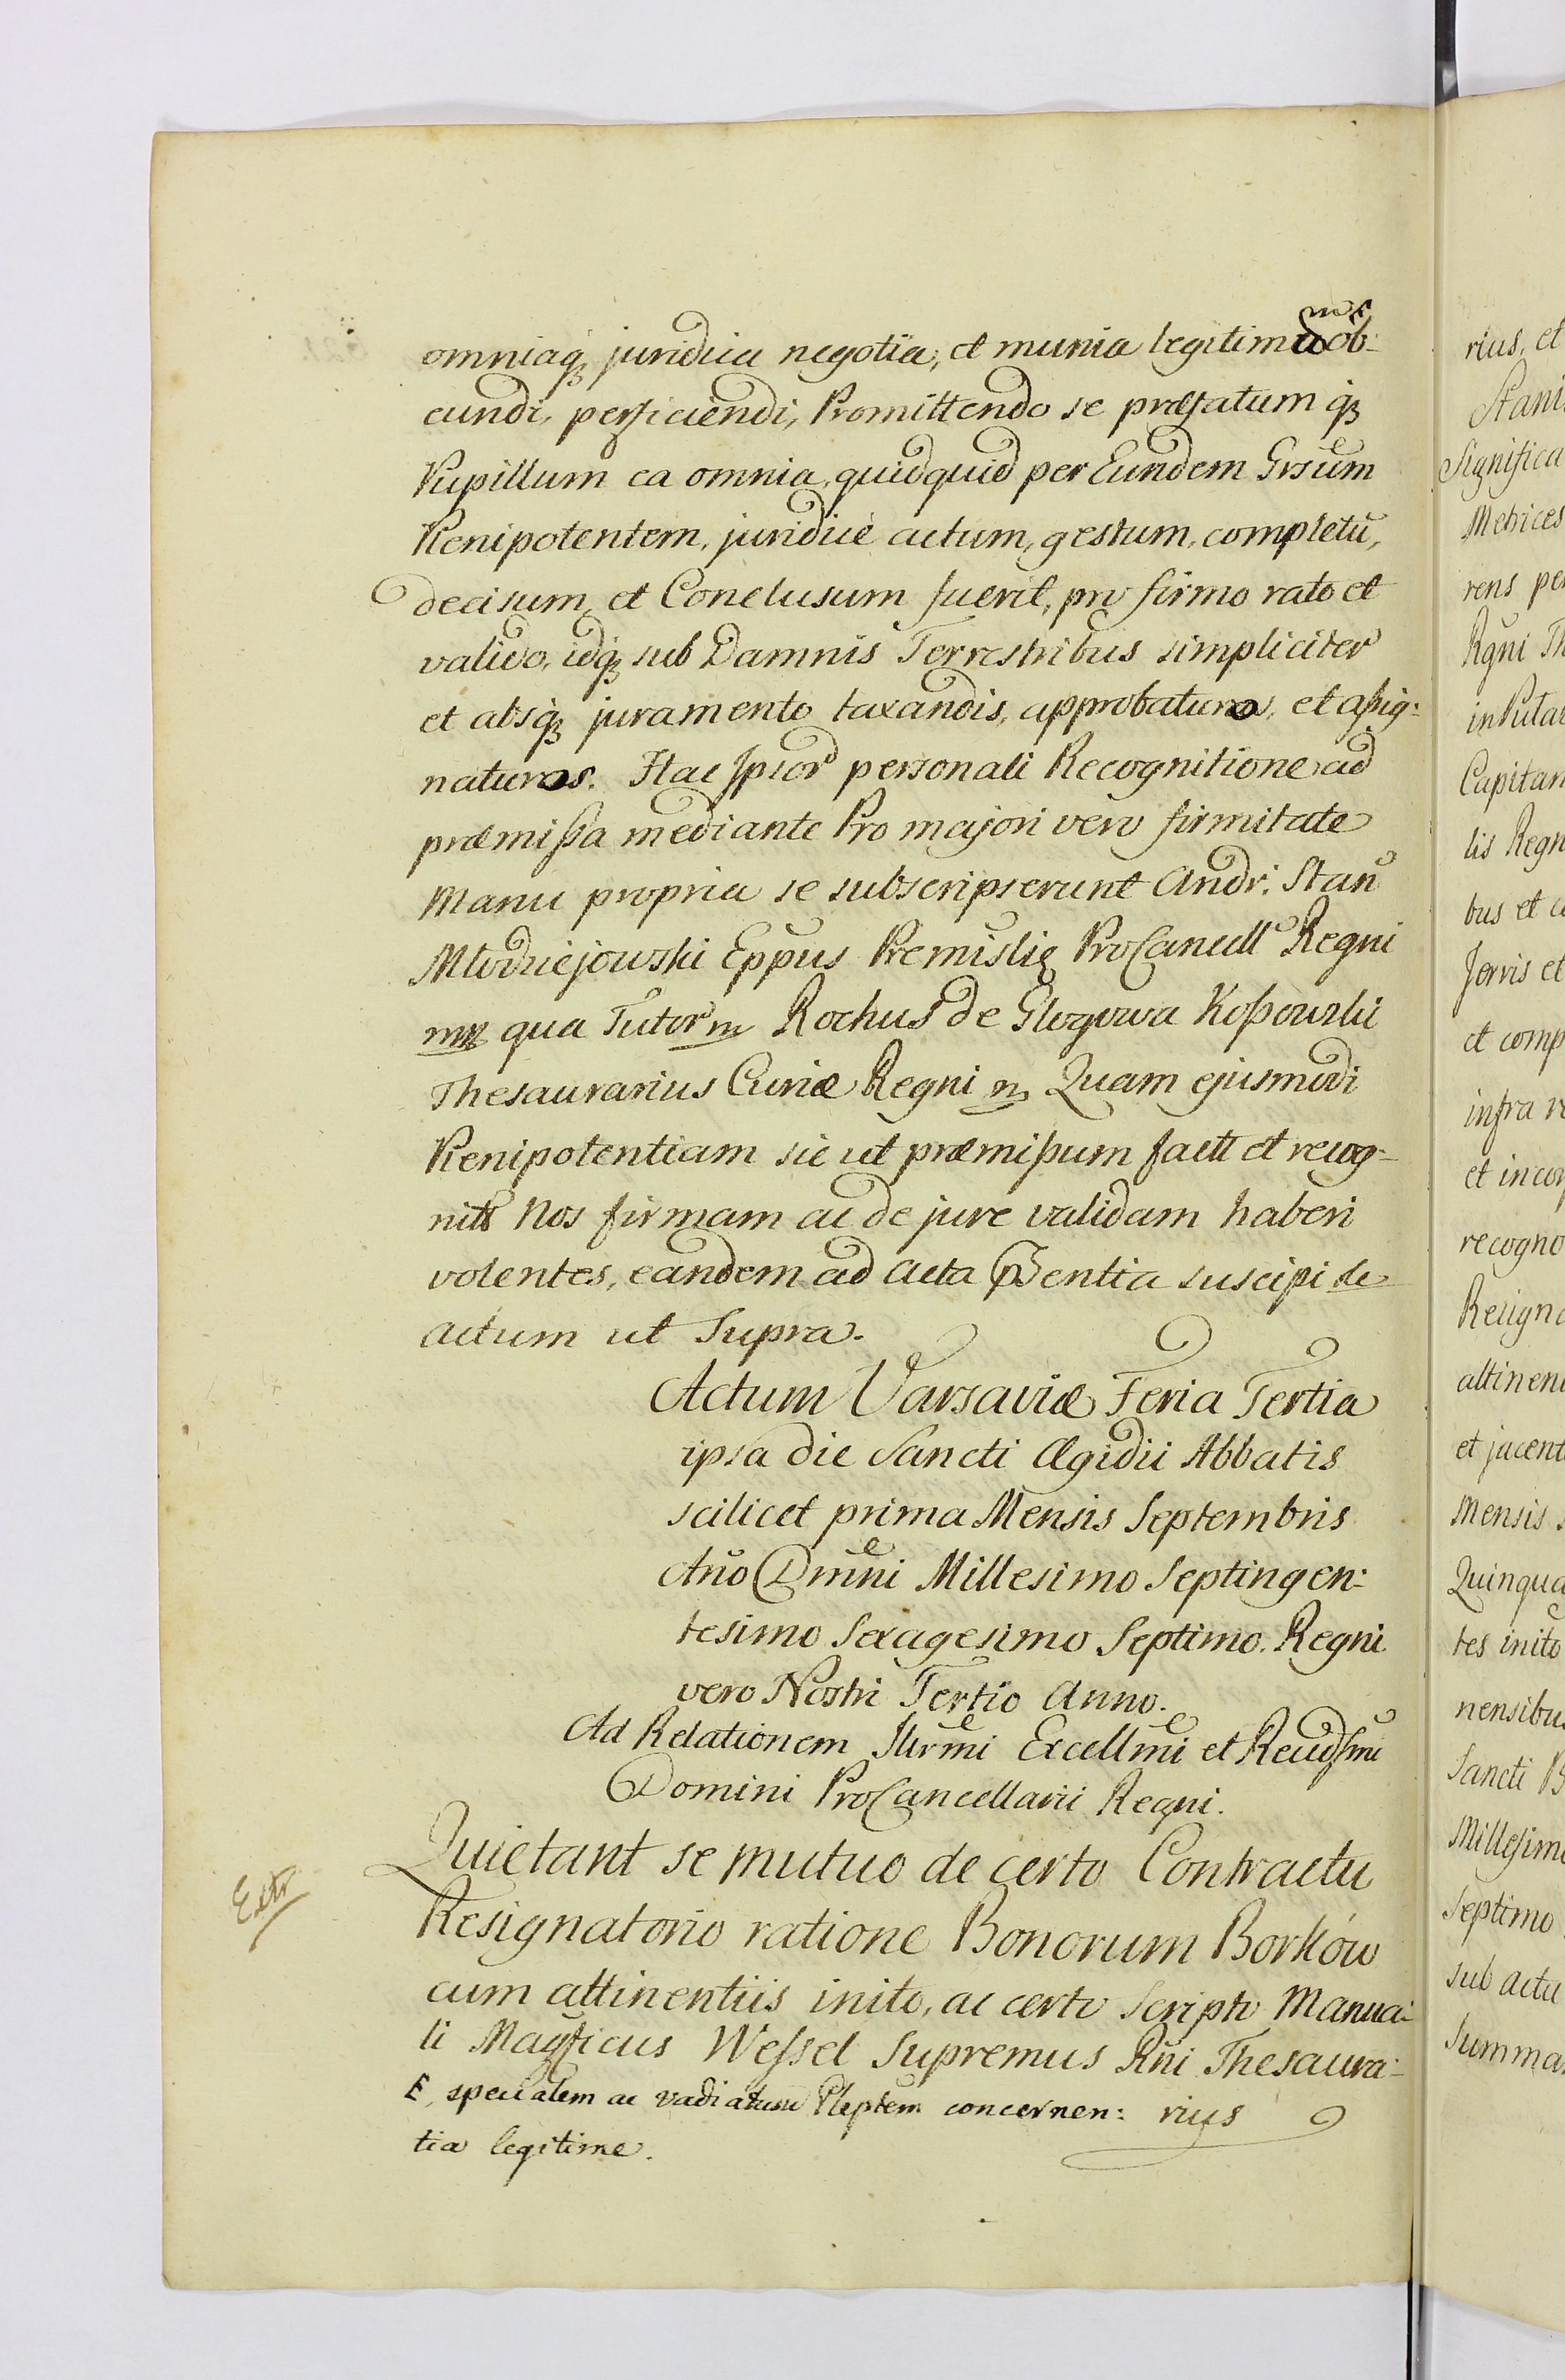 omniaq juridica negotia, et munia legitima ob:
eundi, perficiendi, Promittendo se præfatum q
Pupillum ea omnia, quidquid per Eundem Grsum
Plenipotentem, juridicè actum, gestum, completū,
decisum, et Conclusum fuerit, pro firmo rato et
valido, idq sub Damnis Terrestribus simpliciter
et absq juramento taxandis, approbaturos, et aßig:
naturos. Hac Ipsor personali Recognitione ad
præmißa mediante Pro majori vero firmitate
Manu propria se subscripserunt Andr: Stan
Młodziejowski Eppus Premislię ProCancell Regni
mp qua Tutor m Rochus de Głogowa Koßowski
Thesaurarius Curiæ Regni m Quam ejusmodi
Plenipotentiam sic ut præmißum factt et recog:
nitt Nos firmam ac de jure validam haberi
volentes, eandem ad acta pntia suscipi &c
actum ut Supra.
Actum Varsaviæ Feria Tertia
ipsa die Sancti Ægidii Abbatis
scilicet prima Mensis Septembris
Año Dmni Millesimo Septingen:
tesimo Sexagesimo Septimo. Regni
vero Nostri Tertio Anno.
Ad Relationem Illrmi Excellmi et Reudsmi
Domini ProCancellarii Regni.
Extr
Quietant se mutuo de certo Contractu
Resignatorio ratione Bonorum Borków
cum attinentiis inito, ac certo Scripto Manua:
li Magficus Weſsel Supremus Rni Thesaura:
rius
F, specialem ac vadiatum Pleptem concernen:
tia legitime.
rius, et
Stani
Significa
Metrices
rens per
Rgni Th
Capitan
lis Regn
bus et
et comp
infra
recogno
Resigna
attinen
et jacent
Mensis
Quinqua
tes inito
nensibus
Sancti B
Millesimo
Septimo
sub actu
Summa